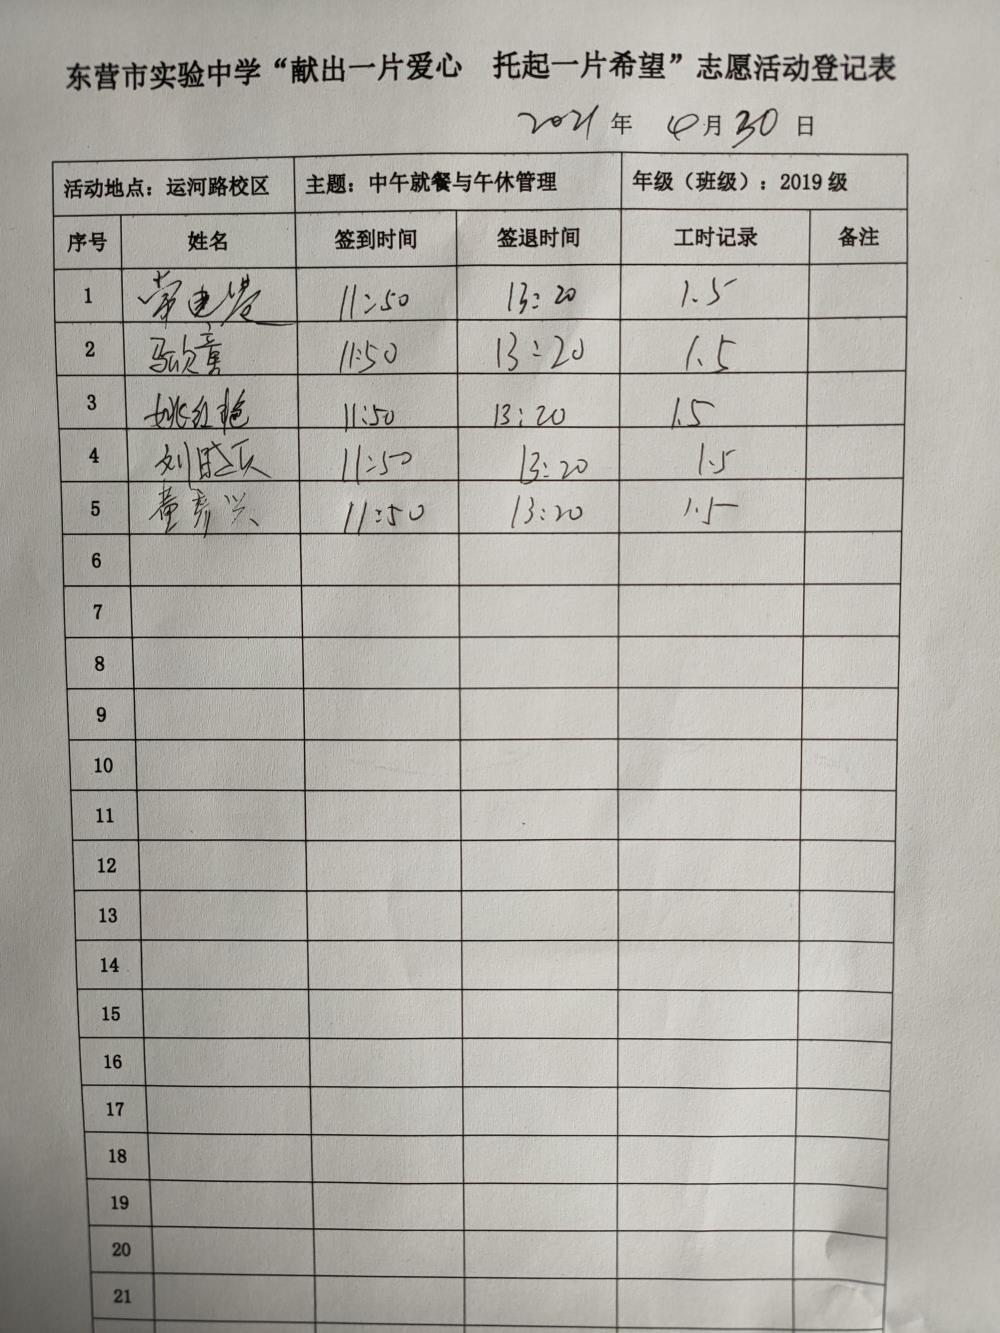 东营市实验中学“献出一片爱心 托起一片希望”志愿活动登记表
2021 年 4 月 30 日
活动地点：运河路校区 主题：中午就餐与午休管理 年级（班级）：2019 级
序号 姓名 签到时间 签退时间 工时记录 备注
1 11:50 13:20 1.5
2 马欣童 11:50 13:20 1.5
3 姚红艳 11:50 13:20 1.5
4 11:50 13:20 1.5
5 董彦兴 11:50 13:20 1.5
6
7
8
9
10
11
12
13
14
15
16
17
18
19
20
21